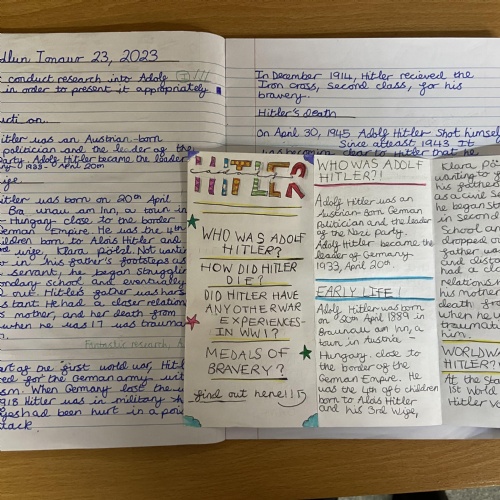 dlun Ionawr 23, 2023
conduct research into Adolf
in order to present it appropriately
ucti on...
itler was an Austrian-born
politician and the leader of the
Party. Adolf Hitler became the leader
1933- April 20th
ife.
itler was born on 20th April
Braunau am Inn, a town in
Hungary close to the border
German Empire. He was the 4th
ildren born to Alois Hitler and
wife, Klara Pölzl. Not wanti
in his father's footsteps as
servant, he began struggling
ondary school and eventually
out. Hitler's gather was harsh
stant. He had a closer relation
s mother, and her death from
when he was 17 was trauma
n.
Fantastic research, A
art of the first world war, Hitl
ed for the German army with
sm. When Germany lost the w
918 Hitler was in military h
had been hurt in a
ttack.
In December 1914, Hitler recieved the
Iron cross, second class, for his
bravery.
Hitler's death
On April 30, 1945 Adolf Hitler shot himself
Since atleast 1943 It
was becoming clear to Hitler that he
HITLER
WHO WAS ADOLF
HITLER?
HOW DID HITLER
DIE?
DID HITLER HAVE
ANY OTHER WAR
EXPERIENCES-
IN WW1?
MEDALS OF
BRAVERY?
find out here!!
WHO WAS ADOLF
HITLER?!
Adolf Hitler was an
Austrian-Born German
politician and the leader
of the Nazi party.
Adolf Hitler became the
leader of Germany
1933, April 20th.
EARLY LIFE!
Adolf Hitler was born
on 20th April 1889 in
Braunau am Inn, a
town in Austria -
Hungary. close to
the border of the
German Empire. He
was the 4th of 6 children
born to Alois Hitler
and his 3rd Wife,
Klara Pöl
wanting to f
his fathers
as a civil S
he began str
in second
School an
dropped o
father wa
and dista
had a clo
relations
his mothe
death fr
when he w
traumati
him.
WORLDWA
HITLER?!
At the sta
1st World
Hitler vo